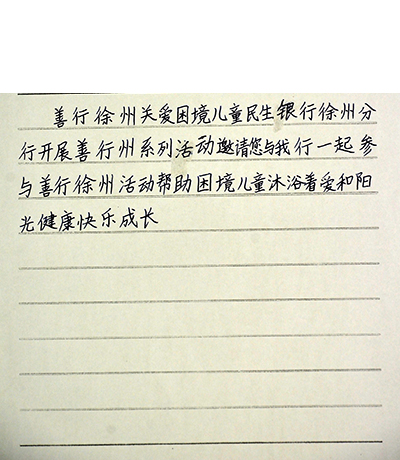 善行徐州关爱困境儿童民生银行徐州分
行开展善行州系列活动邀请您与我行一起参
与善行徐州活动帮助困境儿童沐浴着爱和阳
光健康快乐成长